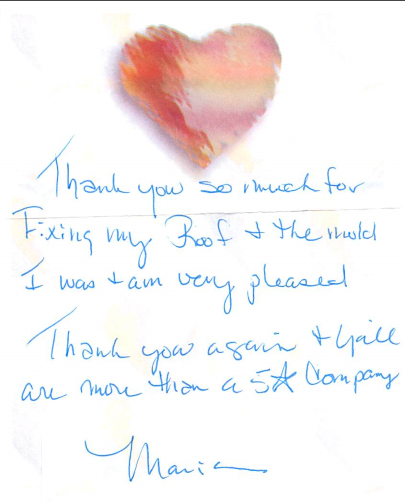 Thank you so much for
Fixing my Roof + the mold
I was + am very pleased
Thank you again + Y'all
are more than a 5☆ Company